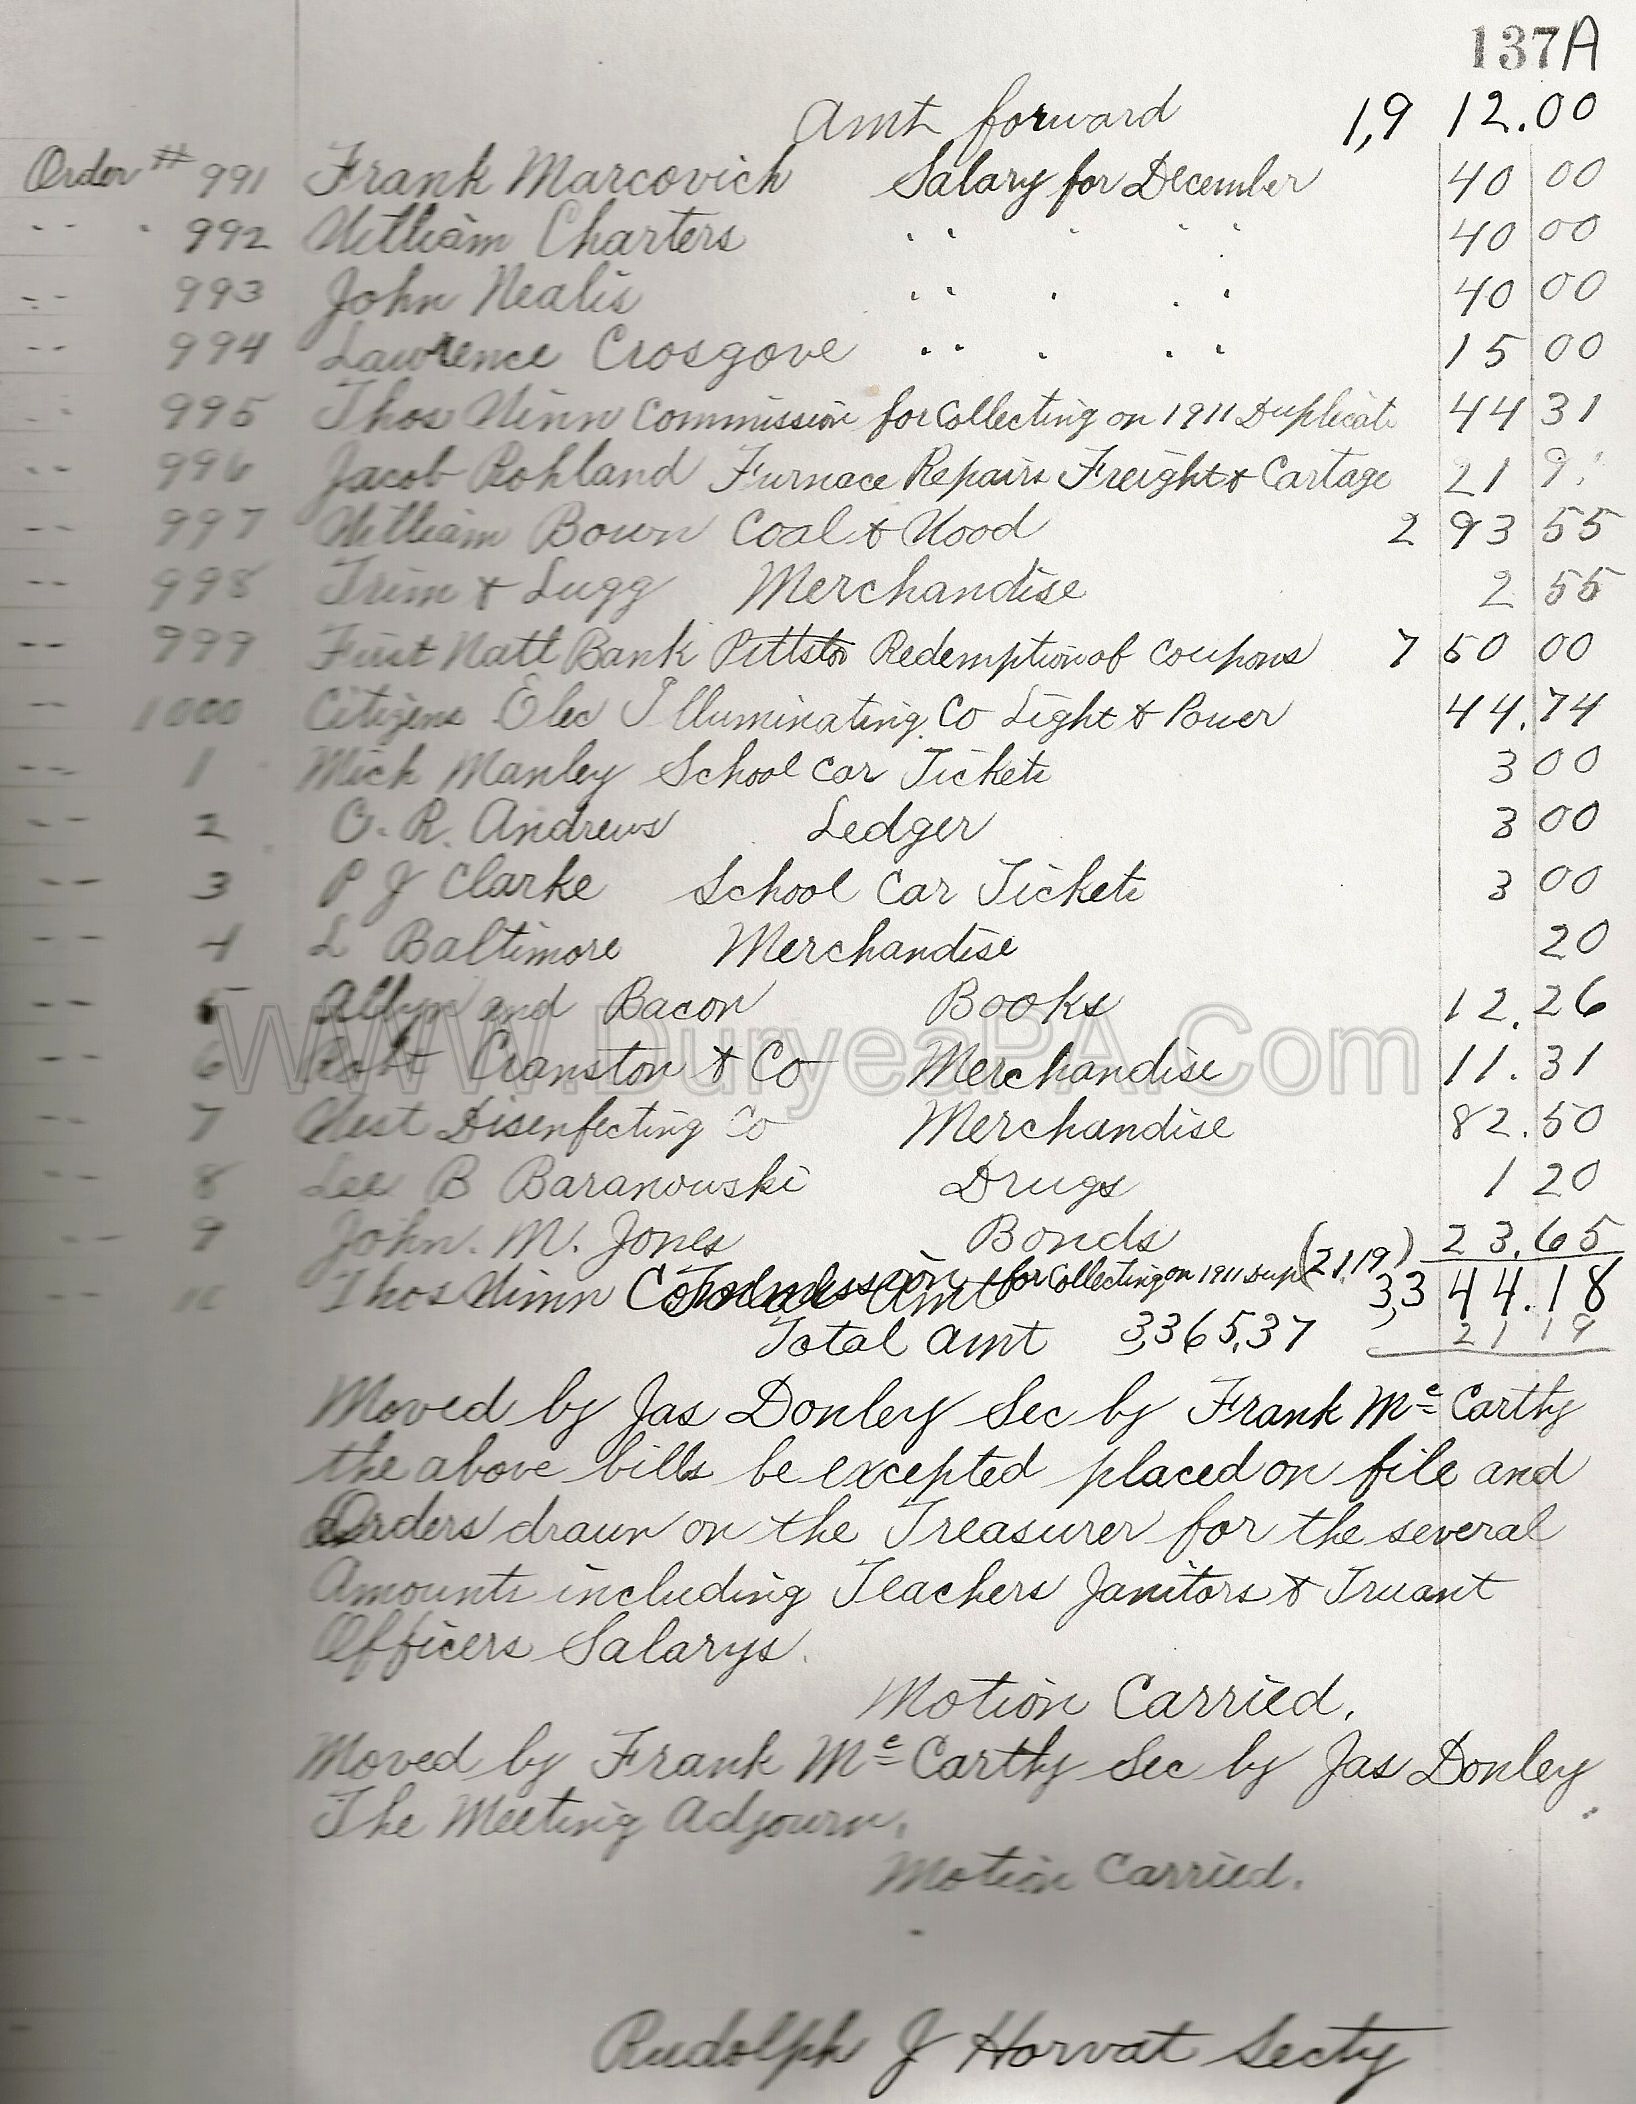 137A
Amt forward 1,912.00
Order # 991 Frank Marcovich Salary for December 40 00
" " " 992 William Charters " " " " " 40 00
" " 993 John Nealis " " " " " 40 00
" " 994 Lawrence Crosgove " " " " " 15 00
" " 995 Thos Winn Commission for Collecting on 1911 Duplicate 44 31
" " 996 Jacob Rohland Furnace Repairs Freight & Cartage 21 9
" " 997 William Bown Coal & Wood 2 93 55
" " 998 Trim & Lugg Merchandise 2 55
" " 999 First Natl Bank Pittston Redemption of Coupons 7 50 00
" " 1000 Citizens Elec Illuminating Co Light & Power 44.74
" " 1 Mich Manley School Car Tickets 3 00
" " 2 O. R. Andrews Ledger 3 00
" " 3 P J Clarke School Car Tickets 3 00
" " 4 L Baltimore Merchandise 20
" " 5 Allyn and Bacon Books 12.26
" " 6 Robt Cranston & Co Merchandise 11.31
" " 7 West Disenfecting Co Merchandise 82.50
" " 8 Lee B Baranowski Drugs 1 20
" " 9 John. M. Jones Bonds 23.65
" " 10 Thos Winn Commission for Collecting on 1911 Dup (21.19) 3,344.18
Total Amt 3,365.37 21 19
Moved by Jas Donley Sec by Frank Mc Carthy
the above bills be excepted placed on file and
Orders drawn on the Treasurer for the several
Amounts including Teachers Janitors & Truant
Officers Salarys.
Motion Carried.
Moved by Frank Mc Carthy Sec by Jas Donley
The Meeting Adjourn.
Motion Carried.
Rudolph J Horvat Secty
WWW.DuryeaPA.Com